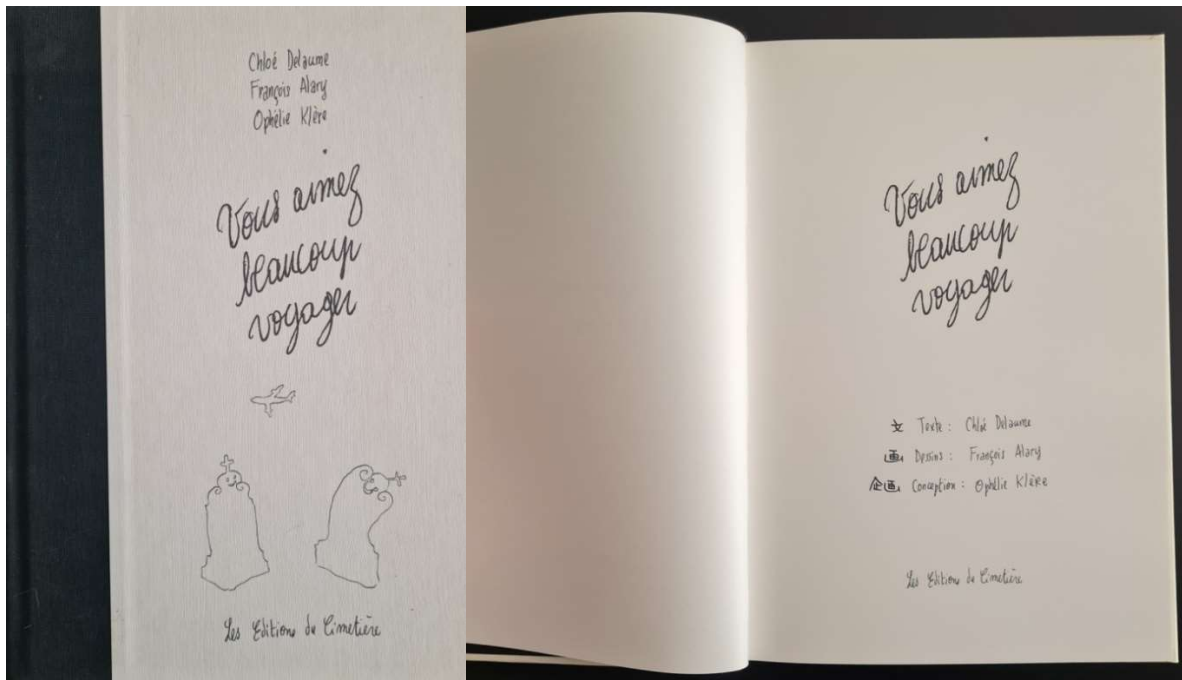 Chloé Delaume
François Alary
Ophélie Klère
Vous aimez
beaucoup
voyager
Les Editions du Cimetière
Vous aimez
beaucoup
voyager
文 Texte : Chloé Delaume
画 Dessins : François Alary
企画 Conception : Ophélie Klère
Les Editions du Cimetière